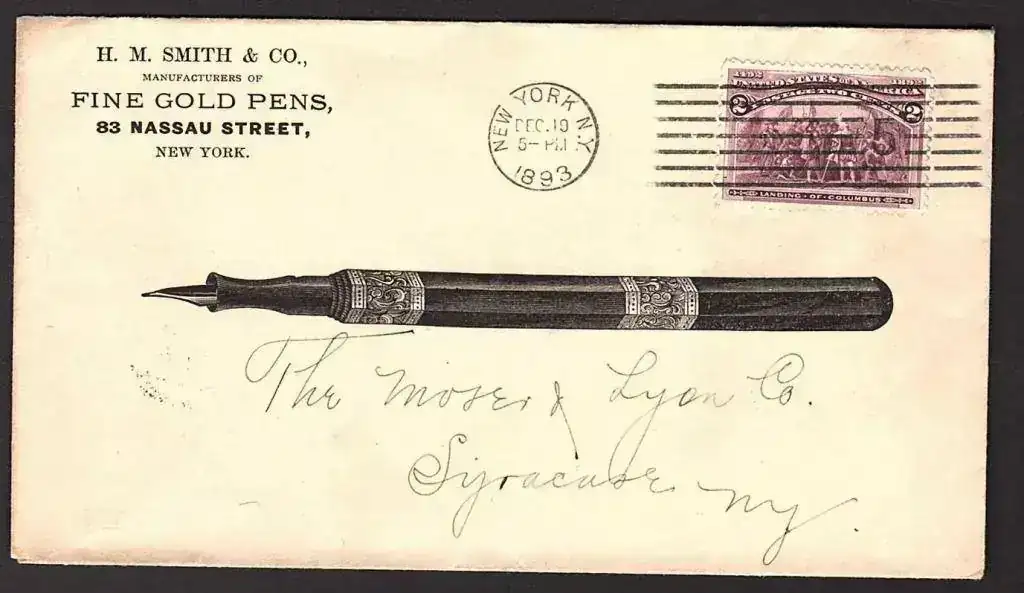 H. M. SMITH & CO.,
MANUFACTURERS OF
FINE GOLD PENS,
83 NASSAU STREET,
NEW YORK.
NEW YORK N.Y.
DEC. 19
5 - PM
1893
1492 1892
UNITED STATES OF AMERICA
POSTAGE TWO CENTS
2 2
LANDING OF COLUMBUS
5
The Moser & Lyon Co.
Syracuse NY.